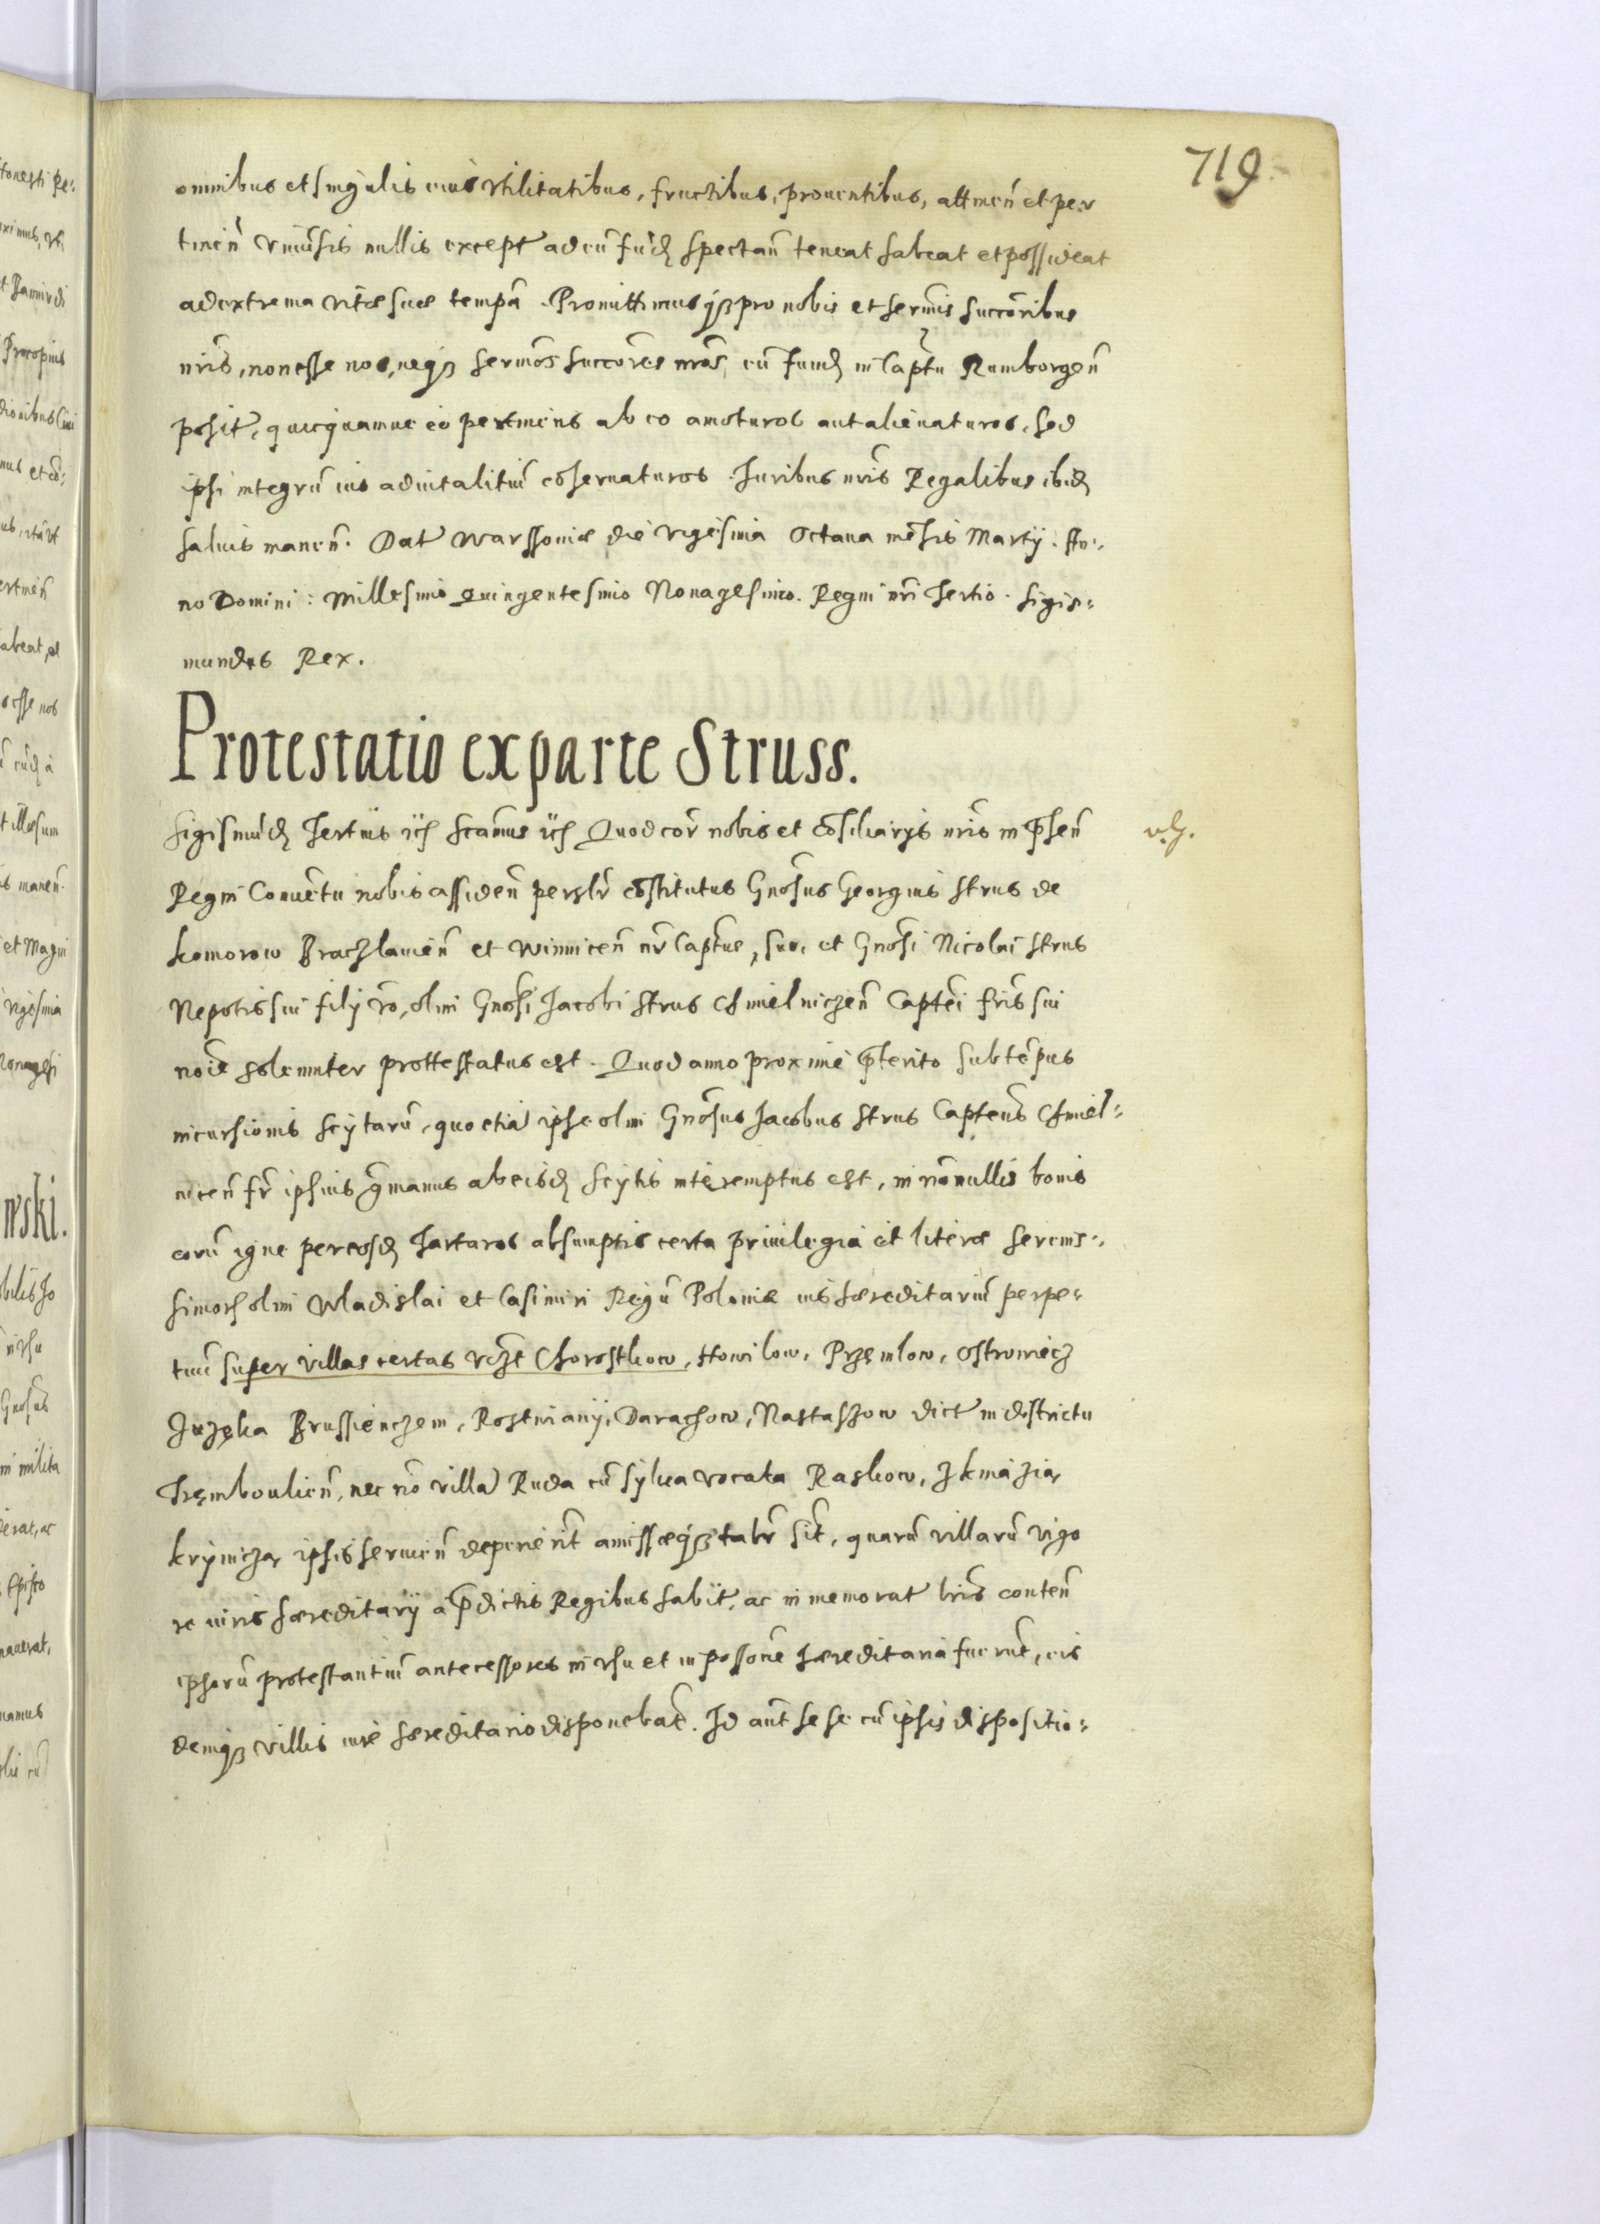 719
omnibus et singulis eius vtilitatibus, fructibus, prouentibus, attinen̄ et per
tinen̄ vniūsis nullis except̄ ad eū fūd spectan̄ teneat habeat et possideat
ad extrema vitæ suæ tempā. Promittimusq₃ pro nobis et sermīs succōribus
nr̄is, non esse nos, neq₃ sermōs succōres nr̄os, eū fund in Cap̄tu Ramborgen̄
posit̄, quicquamue eo pertinens ab eo amoturos aut alienaturos, sed
ipsi integrū ius aduitalitiū cōseruaturos. Iuribus nr̄is Regalibus ibid
saluis manen̄. Dat̄ Warssouiæ die vigesima Octaua mēsis Martij. An-
no Domini: Millesimo Quingentesimo Nonagesimo. Regni nr̄i Tertio. Sigis-
mundus Rex.
Protestatio ex parte Struss.
Sigismūd Tertius ic̄h Scāmus ic̄h Quod cor̄ nobis et cōsiliarijs nr̄is in p̄sen̄
Regni Conuētu nobis assiden̄ persl̄r cōstitutus Gn̄osus Georgius Strus de
Komorow Braczlauien̄ et Winnicen̄ nr̄ Cap̄tus, suo, et Gn̄osi Nicolai Strus
Nepotis sui filij v̄o, olim Gn̄osi Jacobi Strus Chmielniczen̄ Cap̄tei fr̄is sui
noīe solemniter prottestatus est. Quod anno proxime p̄terito sub tēpus
incursionis Scytarū, quo etiā ipse olim Gn̄osus Jacobus Strus Capteūs Chmiel-
nicen̄ fr̄ ipsius ḡmanus ab eisd Scytis interemptus est, in nōnullis bonis
eorū igne per eosd Tartaros absumptis certa priuilegia et literæ Sereniss-
simorh olim Wladislai et Casimiri Regū Poloniæ ius hæreditariū perpe-
tuū super villas certas vczt Chorostkow, Howilow, Przemlow, Ostrowiecz
Juzęka Brussienczem, Rostwianÿ, Darachow, Nastaszow dict̄ in districtu
Tręmboulien̄, nec nō villā Ruda cū sylua vocata Raskow,
Krÿnicza ipsis seruien̄ deperierīt amissæq₃ tal̄r sīt, quarū villarū vigo
re iuris hæreditarÿ a p̄dictis Regibus habit̄, ac in memorat̄ lr̄is conten̄
ipsorū protestantiū antecessores in vsu et in possōne hæreditaria fuerūt, eis
demq₃ villis iure hæreditario disponebāt. Id aūt sese cū ipsis dispositio-